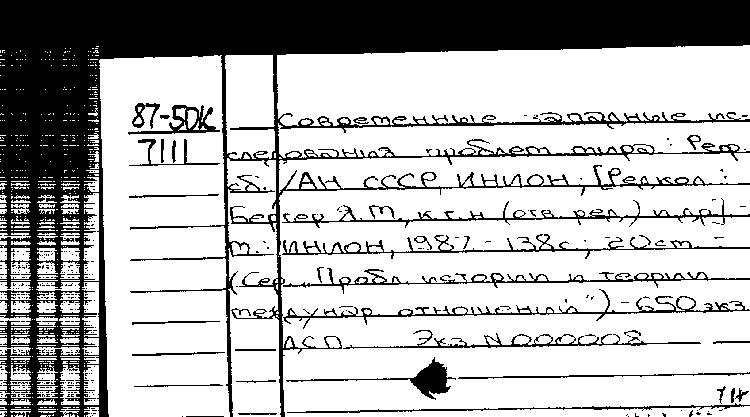 87-5DK
7111
Современные западные ис-
следования проблем мира : Реф.
сб. / АН СССР, ИНИОН ; [Редкол. :
Бергер Я. М., к.г.н (отв. ред.) и др.] -
М. : ИНИОН, 1987 - 138 с ; 20 см. -
(Сер. „Пробл. истории и теории
междунар. отношений"). - 650 экз
ДСП. Экз. N 000008